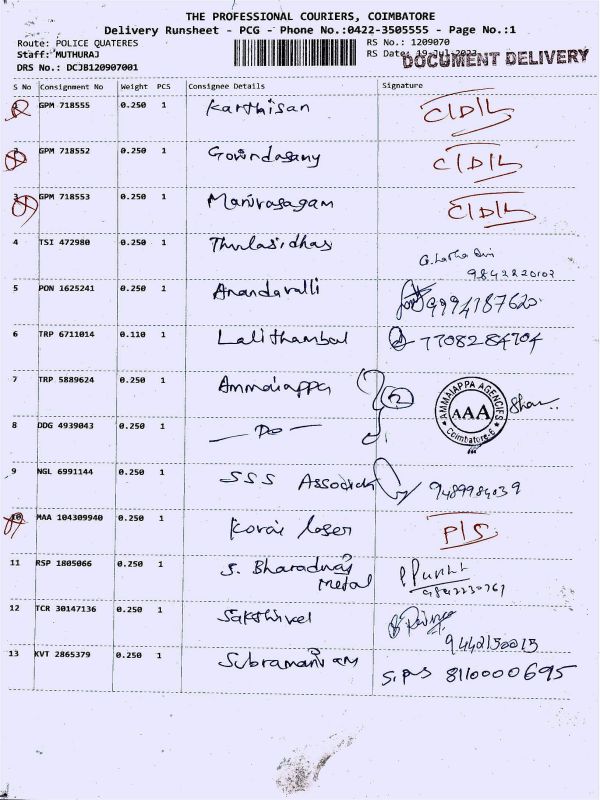 THE PROFESSIONAL COURIERS, COIMBATORE
Delivery Runsheet - PCG - Phone No.:0422-3505555 - Page No.:1
Route: POLICE QUATERES
RS No.: 1209070
Staff: MUTHURAJ
RS Date: 19-Jul-2023
DOCUMENT DELIVERY
DRS No.: DCJB120907001
S No Consignment No Weight PCS Consignee Details Signature
1 GPM 718555 0.250 1 Karthisan C/D/L
2 GPM 718552 0.250 1 Govindasamy C/D/L
3 GPM 718553 0.250 1 Manivasagam C/D/L
4 TSI 472980 0.250 1 Thulasidhas
9842220102
5 PON 1625241 0.250 1 Anandavalli 9994187620
6 TRP 6711014 0.110 1 Lalithambal 7708284704
7 TRP 5889624 0.250 1 Ammaiappa 2
AMMAIAPPA AGENCIES
AAA
Coimbatore-6
8 DDG 4939043 0.250 1 — Do —
9 NGL 6991144 0.250 1 SSS Associate 9489984039
10 MAA 104309940 0.250 1 Kovai laser P/S
11 RSP 1805066 0.250 1 S. Bharadwaj
Metal
12 TCR 30147136 0.250 1 Sakthivel
9442150015
13 KVT 2865379 0.250 1 Subramaniam 8110000695